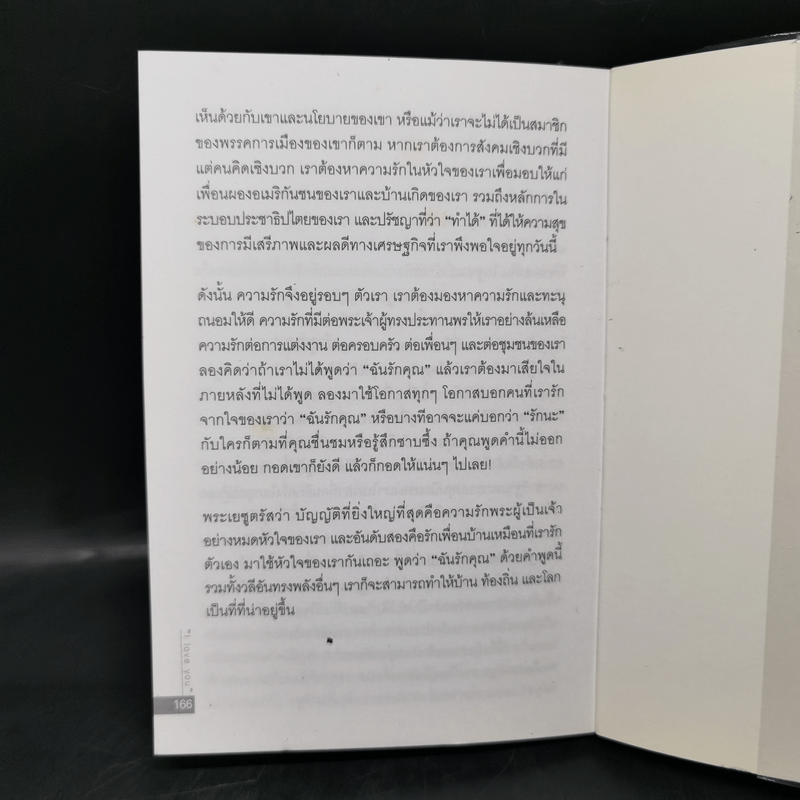 เห็นด้วยกับเขาและนโยบายของเขา หรือแม้ว่าเราจะไม่ได้เป็นสมาชิก
ของพรรคการเมืองของเขาก็ตาม หากเราต้องการสังคมเชิงบวกที่มี
แต่คนคิดเชิงบวก เราต้องหาความรักในหัวใจของเราเพื่อมอบให้แก่
เพื่อนผองอเมริกันชนของเราและบ้านเกิดของเรา รวมถึงหลักการใน
ระบอบประชาธิปไตยของเรา และปรัชญาที่ว่า “ทำได้” ที่ได้ให้ความสุข
ของการมีเสรีภาพและผลดีทางเศรษฐกิจที่เราพึงพอใจอยู่ทุกวันนี้
ดังนั้น ความรักจึงอยู่รอบๆ ตัวเรา เราต้องมองหาความรักและทะนุ
ถนอมให้ดี ความรักที่มีต่อพระเจ้าผู้ทรงประทานพรให้เราอย่างล้นเหลือ
ความรักต่อการแต่งงาน ต่อครอบครัว ต่อเพื่อนๆ และต่อชุมชนของเรา
ลองคิดว่าถ้าเราไม่ได้พูดว่า “ฉันรักคุณ” แล้วเราต้องมาเสียใจใน
ภายหลังที่ไม่ได้พูด ลองมาใช้โอกาสทุกๆ โอกาสบอกคนที่เรารัก
จากใจของเราว่า “ฉันรักคุณ” หรือบางทีอาจจะแค่บอกว่า “รักนะ”
กับใครก็ตามที่คุณชื่นชมหรือรู้สึกซาบซึ้ง ถ้าคุณพูดคำนี้ไม่ออก
อย่างน้อย กอดเขาก็ยังดี แล้วก็กอดให้แน่นๆ ไปเลย!
พระเยซูตรัสว่า บัญญัติที่ยิ่งใหญ่ที่สุดคือความรักพระผู้เป็นเจ้า
อย่างหมดหัวใจของเรา และอันดับสองคือรักเพื่อนบ้านเหมือนที่เรารัก
ตัวเอง มาใช้หัวใจของเรากันเถอะ พูดว่า “ฉันรักคุณ” ด้วยคำพูดนี้
รวมทั้งวลีอันทรงพลังอื่นๆ เราก็จะสามารถทำให้บ้าน ท้องถิ่น และโลก
เป็นที่ที่น่าอยู่ขึ้น
“I love you”
166